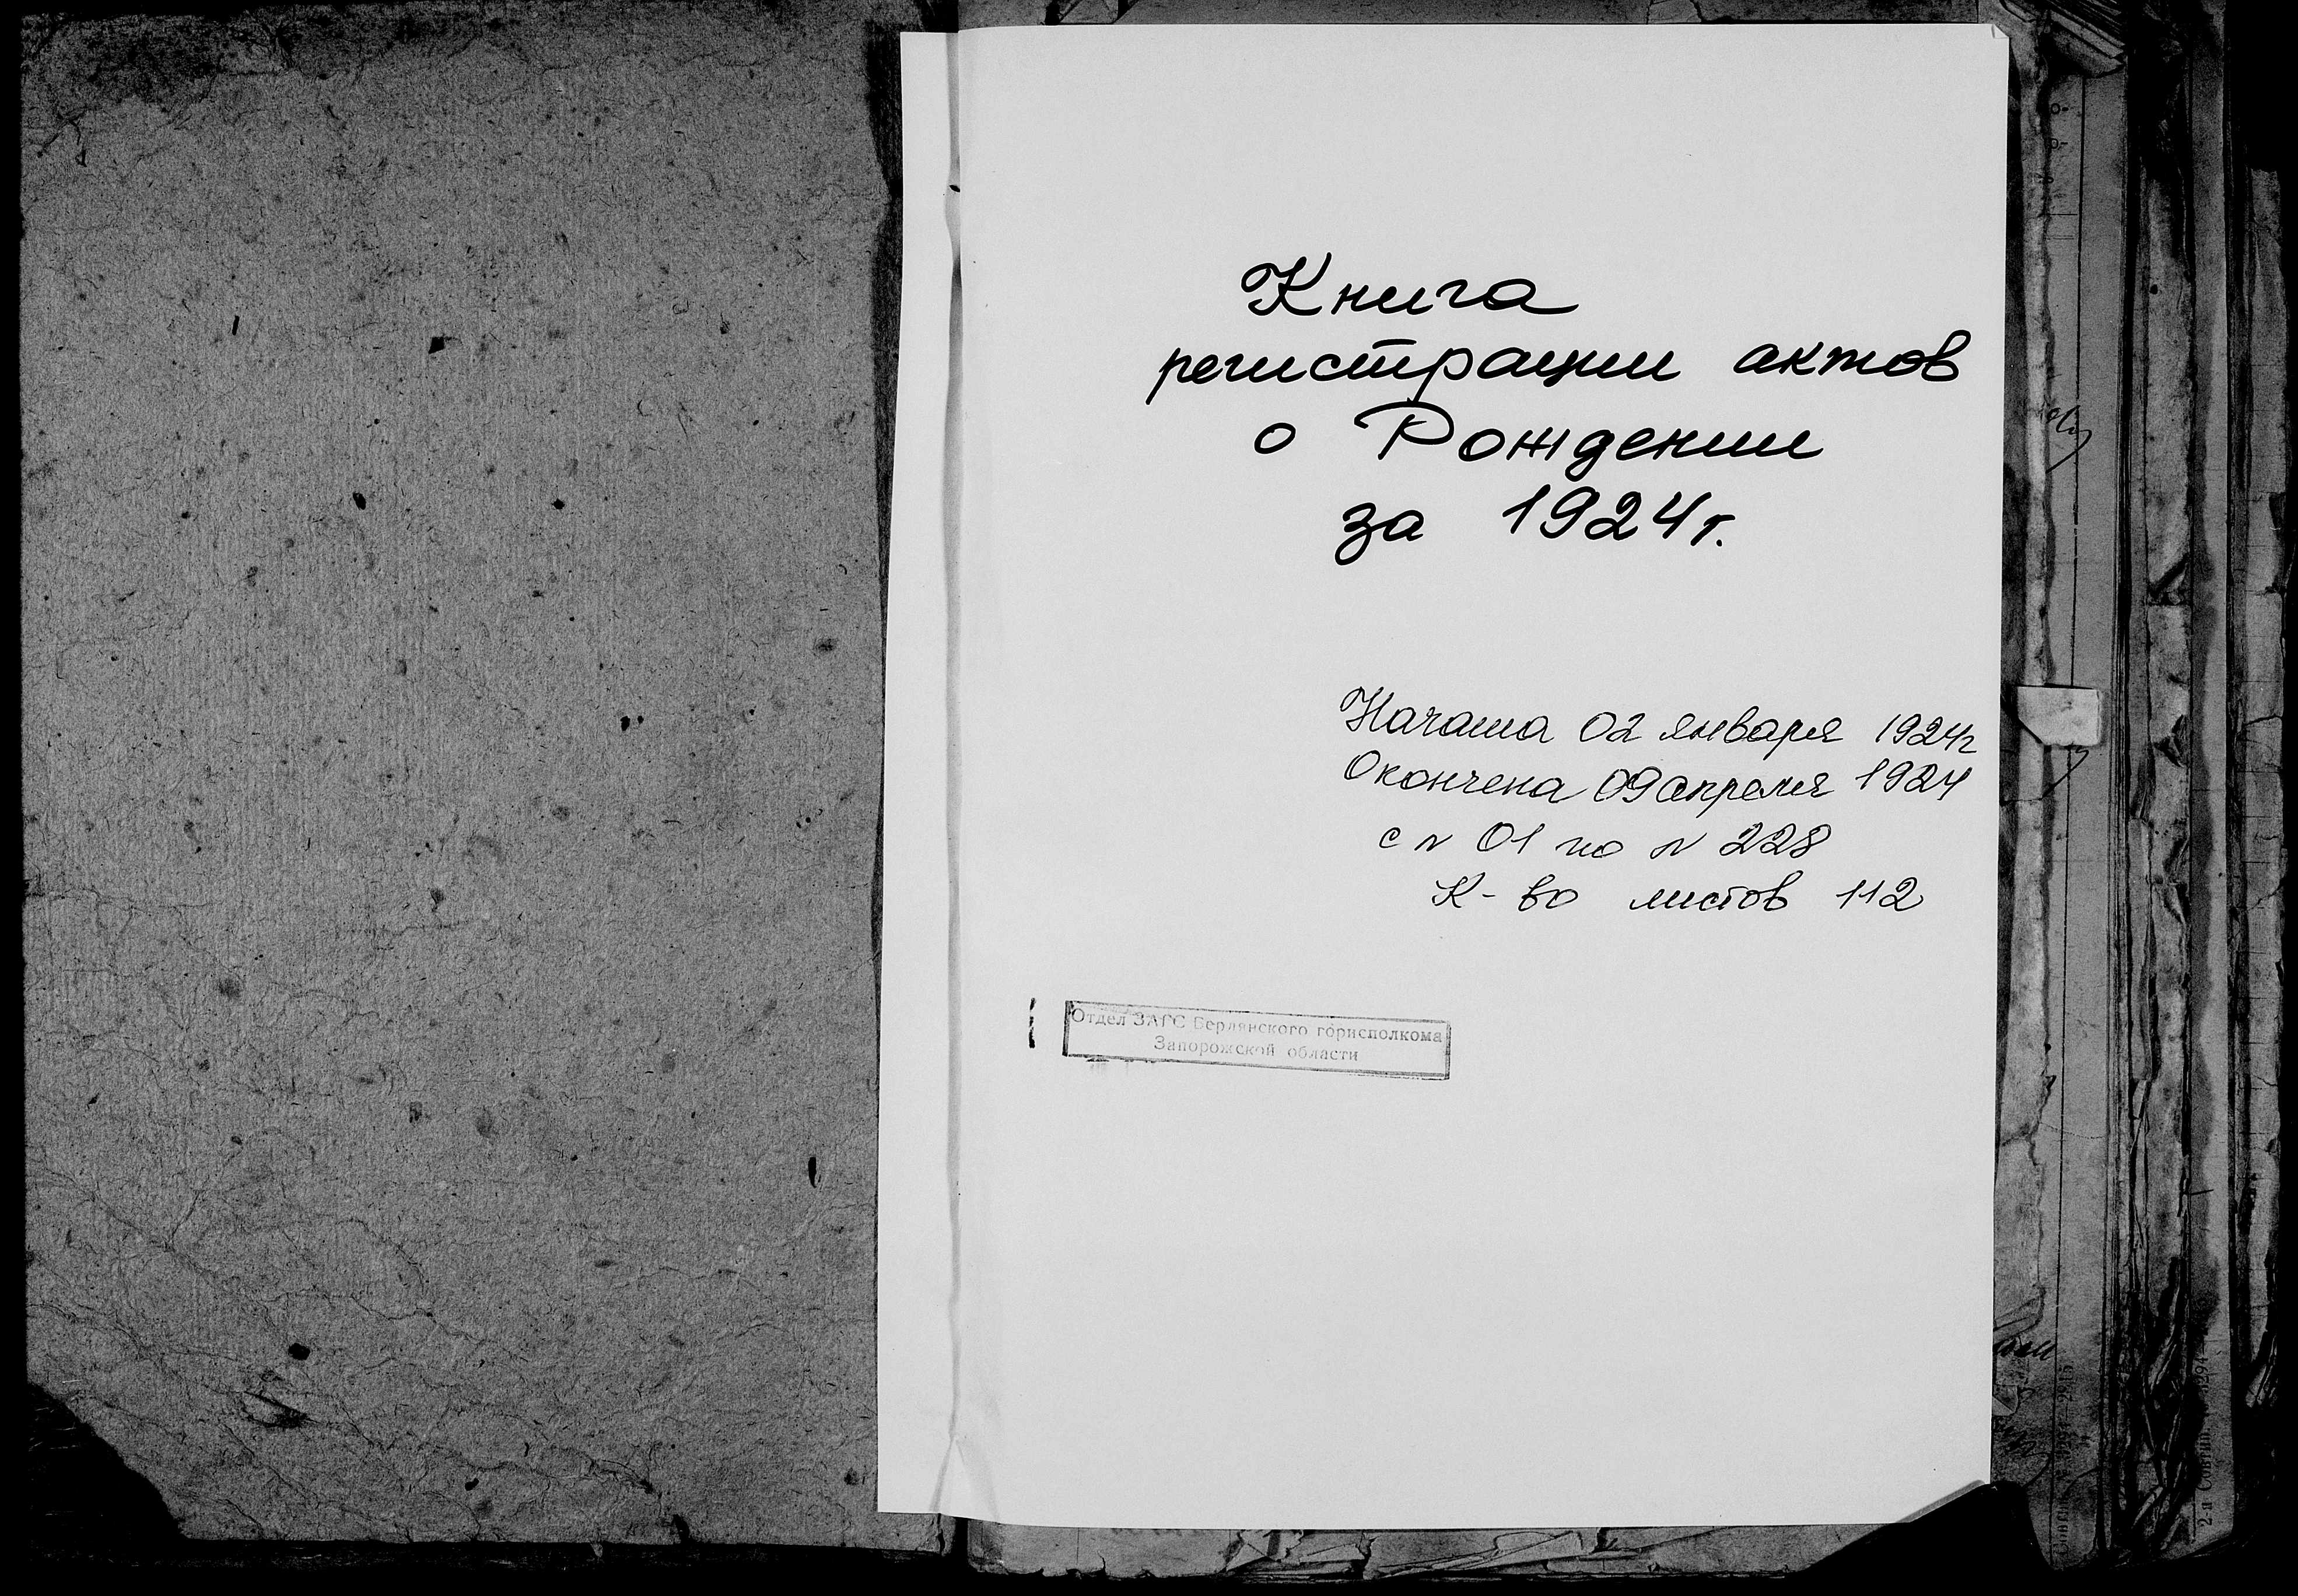 Книга
регистрации актов
о Рождении
за 1924г.
Начата 02 января 1924г
Окончена 09 апреля 1924
с N 01 по N 228
К-во листов 112
Отдел ЗАГС Бердянского горисполкома
Запорожской области